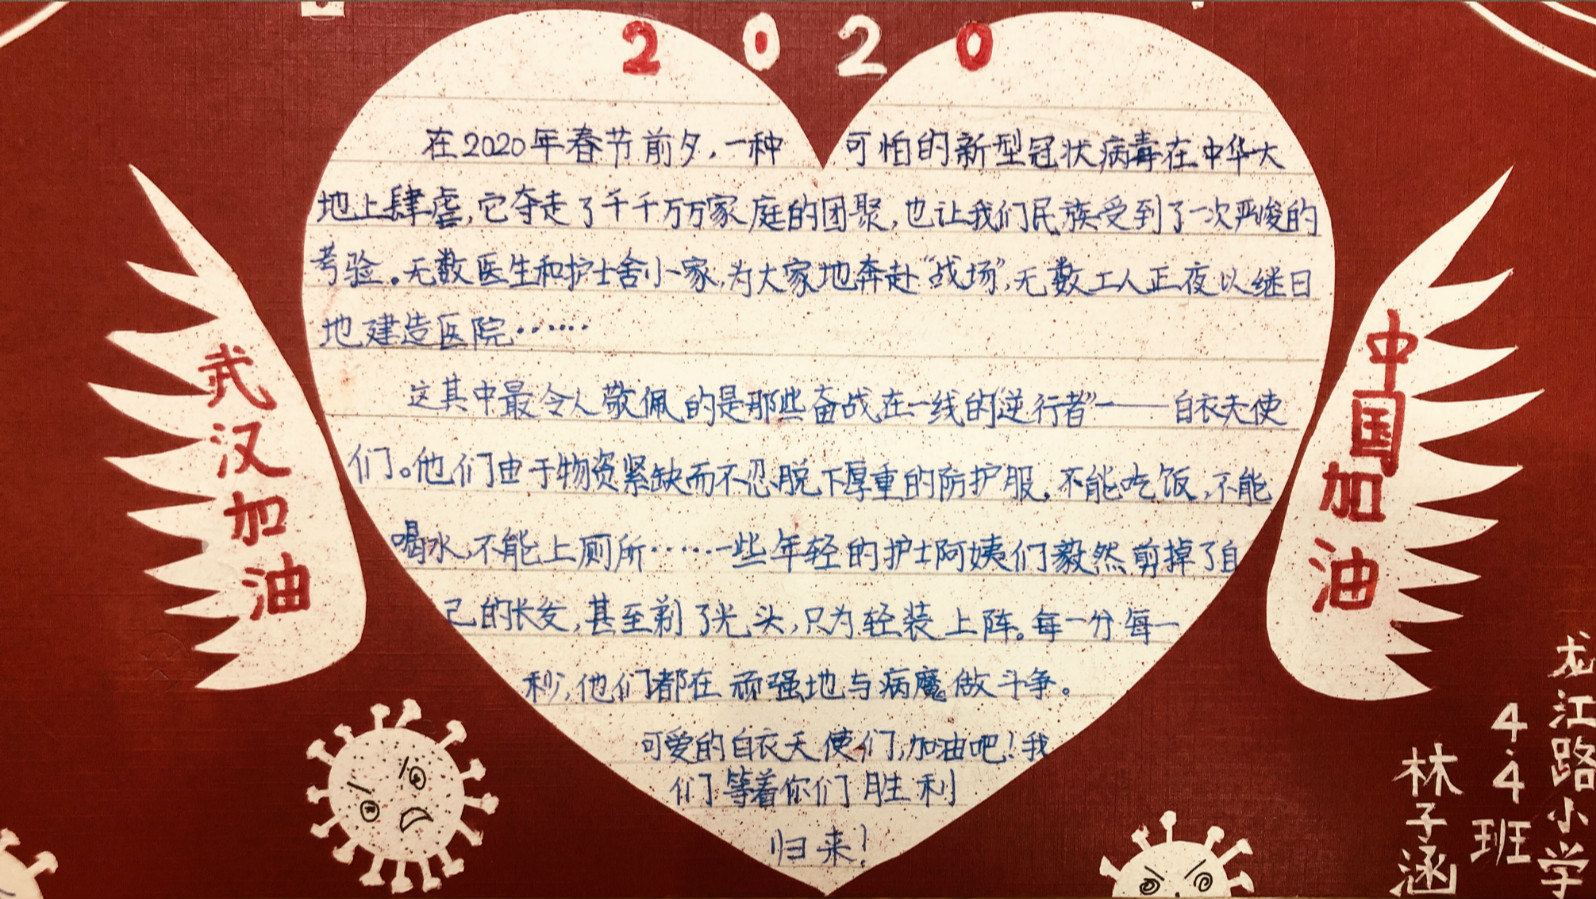 2020
在2020年春节前夕,一种可怕的新型冠状病毒在中华大
地上肆虐,它夺走了千千万万家庭的团聚,也让我们民族受到了一次严峻的
考验。无数医生和护士舍小家,为大家地奔赴“战场”,无数工人正夜以继日
地建造医院……
这其中最令人敬佩的是那些奋战在一线的“逆行者”——白衣天使
们。他们由于物资紧缺而不忍脱下厚重的防护服,不能吃饭,不能
喝水,不能上厕所……一些年轻的护士阿姨们毅然剪掉了自
己的长发,甚至剃了光头,只为轻装上阵。每一分每一
秒,他们都在顽强地与病魔做斗争。
可爱的白衣天使们,加油吧!我
们等着你们胜利
归来!
武汉加油
中国加油
龙江路小学
4.4班
林子涵